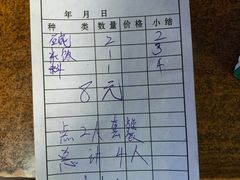 年 月 日
种 类 数量 价格 小结
碱 2 2
3
料 1 4
8元
点2人套餐
总计4人